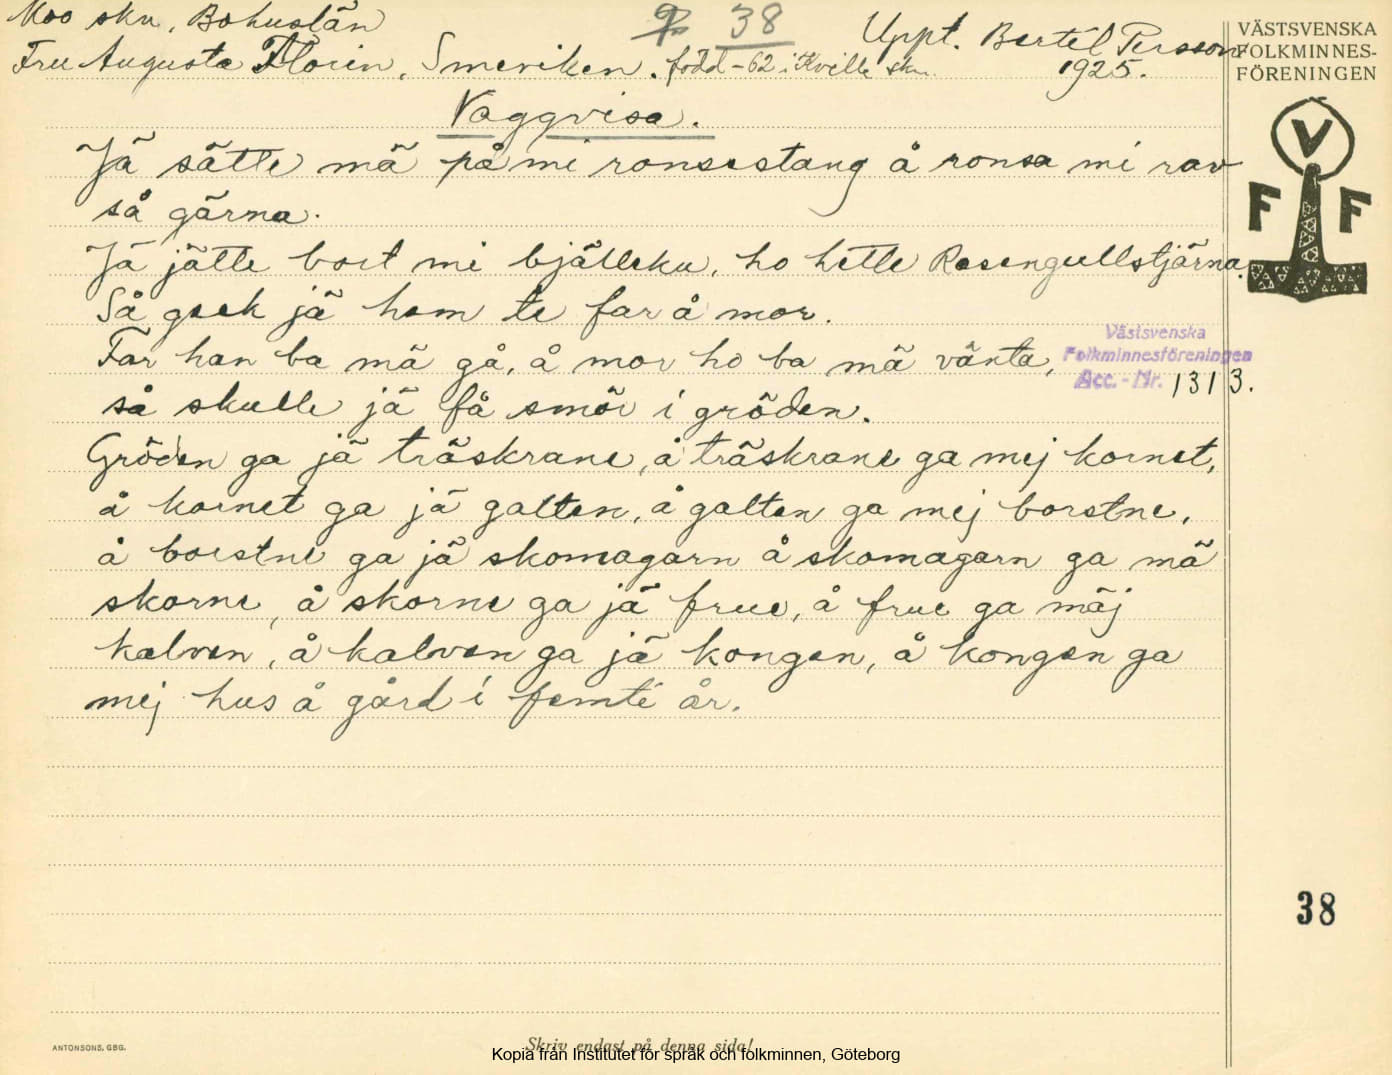 Moo skn, Bohuslän
38
Uppt. Bertel Persson
1925.
Fru Augusta Florin, Smeviken. född -62 i Kville skn.
VÄSTSVENSKA
FOLKMINNES-
FÖRENINGEN
Vaggvisa.
Jä sätte mä på mi ronsestang å ronsa mi rav
så gärna.
Jä jätte bort mi bjälleku, ho hette Rosengullstjärna.
Så geek jä hem te far å mor.
Far han ba mä gå, å mor ho ba mä vänta,
så skulle jä få smör i gröden.
Gröden ga jä träskrane, å träskrane ga mej kornet,
å kornet ga jä galten, å galten ga mej borstne,
å borstne ga jä skomagarn å skomagarn ga mä
skorne, å skorne ga jä frue, å frue ga mäj
kalven, å kalven ga jä kongen, å kongen ga
mej hus å gård i femte år.
V
F F
Västsvenska
Folkminnesföreningen
Acc.-Nr. 1313.
38
ANTONSONS, GBG.
Skriv endast på denna sida!
Kopia från Institutet för språk och folkminnen, Göteborg